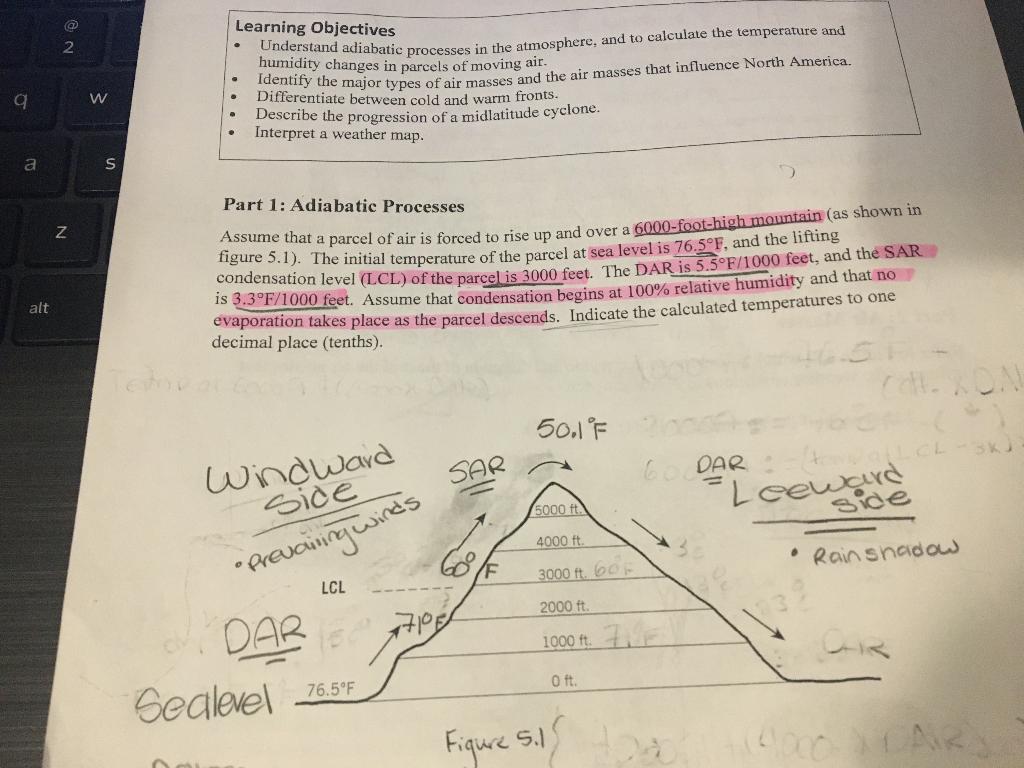 @
2
q
W
a
S
Z
alt
Learning Objectives
• Understand adiabatic processes in the atmosphere, and to calculate the temperature and
humidity changes in parcels of moving air.
• Identify the major types of air masses and the air masses that influence North America.
• Differentiate between cold and warm fronts.
• Describe the progression of a midlatitude cyclone.
• Interpret a weather map.
Part 1: Adiabatic Processes
Assume that a parcel of air is forced to rise up and over a 6000-foot-high mountain (as shown in
figure 5.1). The initial temperature of the parcel at sea level is 76.5°F, and the lifting
condensation level (LCL) of the parcel is 3000 feet. The DAR is 5.5°F/1000 feet, and the SAR
is 3.3°F/1000 feet. Assume that condensation begins at 100% relative humidity and that no
evaporation takes place as the parcel descends. Indicate the calculated temperatures to one
decimal place (tenths).
50.1°F
Windward
side
• prevailing winds
SAR
DAR
Leeward
side
• Rainshadow
5000 ft.
4000 ft.
60°F
3000 ft. 60°F
LCL
2000 ft.
71°F
1000 ft. 71°F
DAR
0 ft.
Sealevel
76.5°F
Figure 5.1